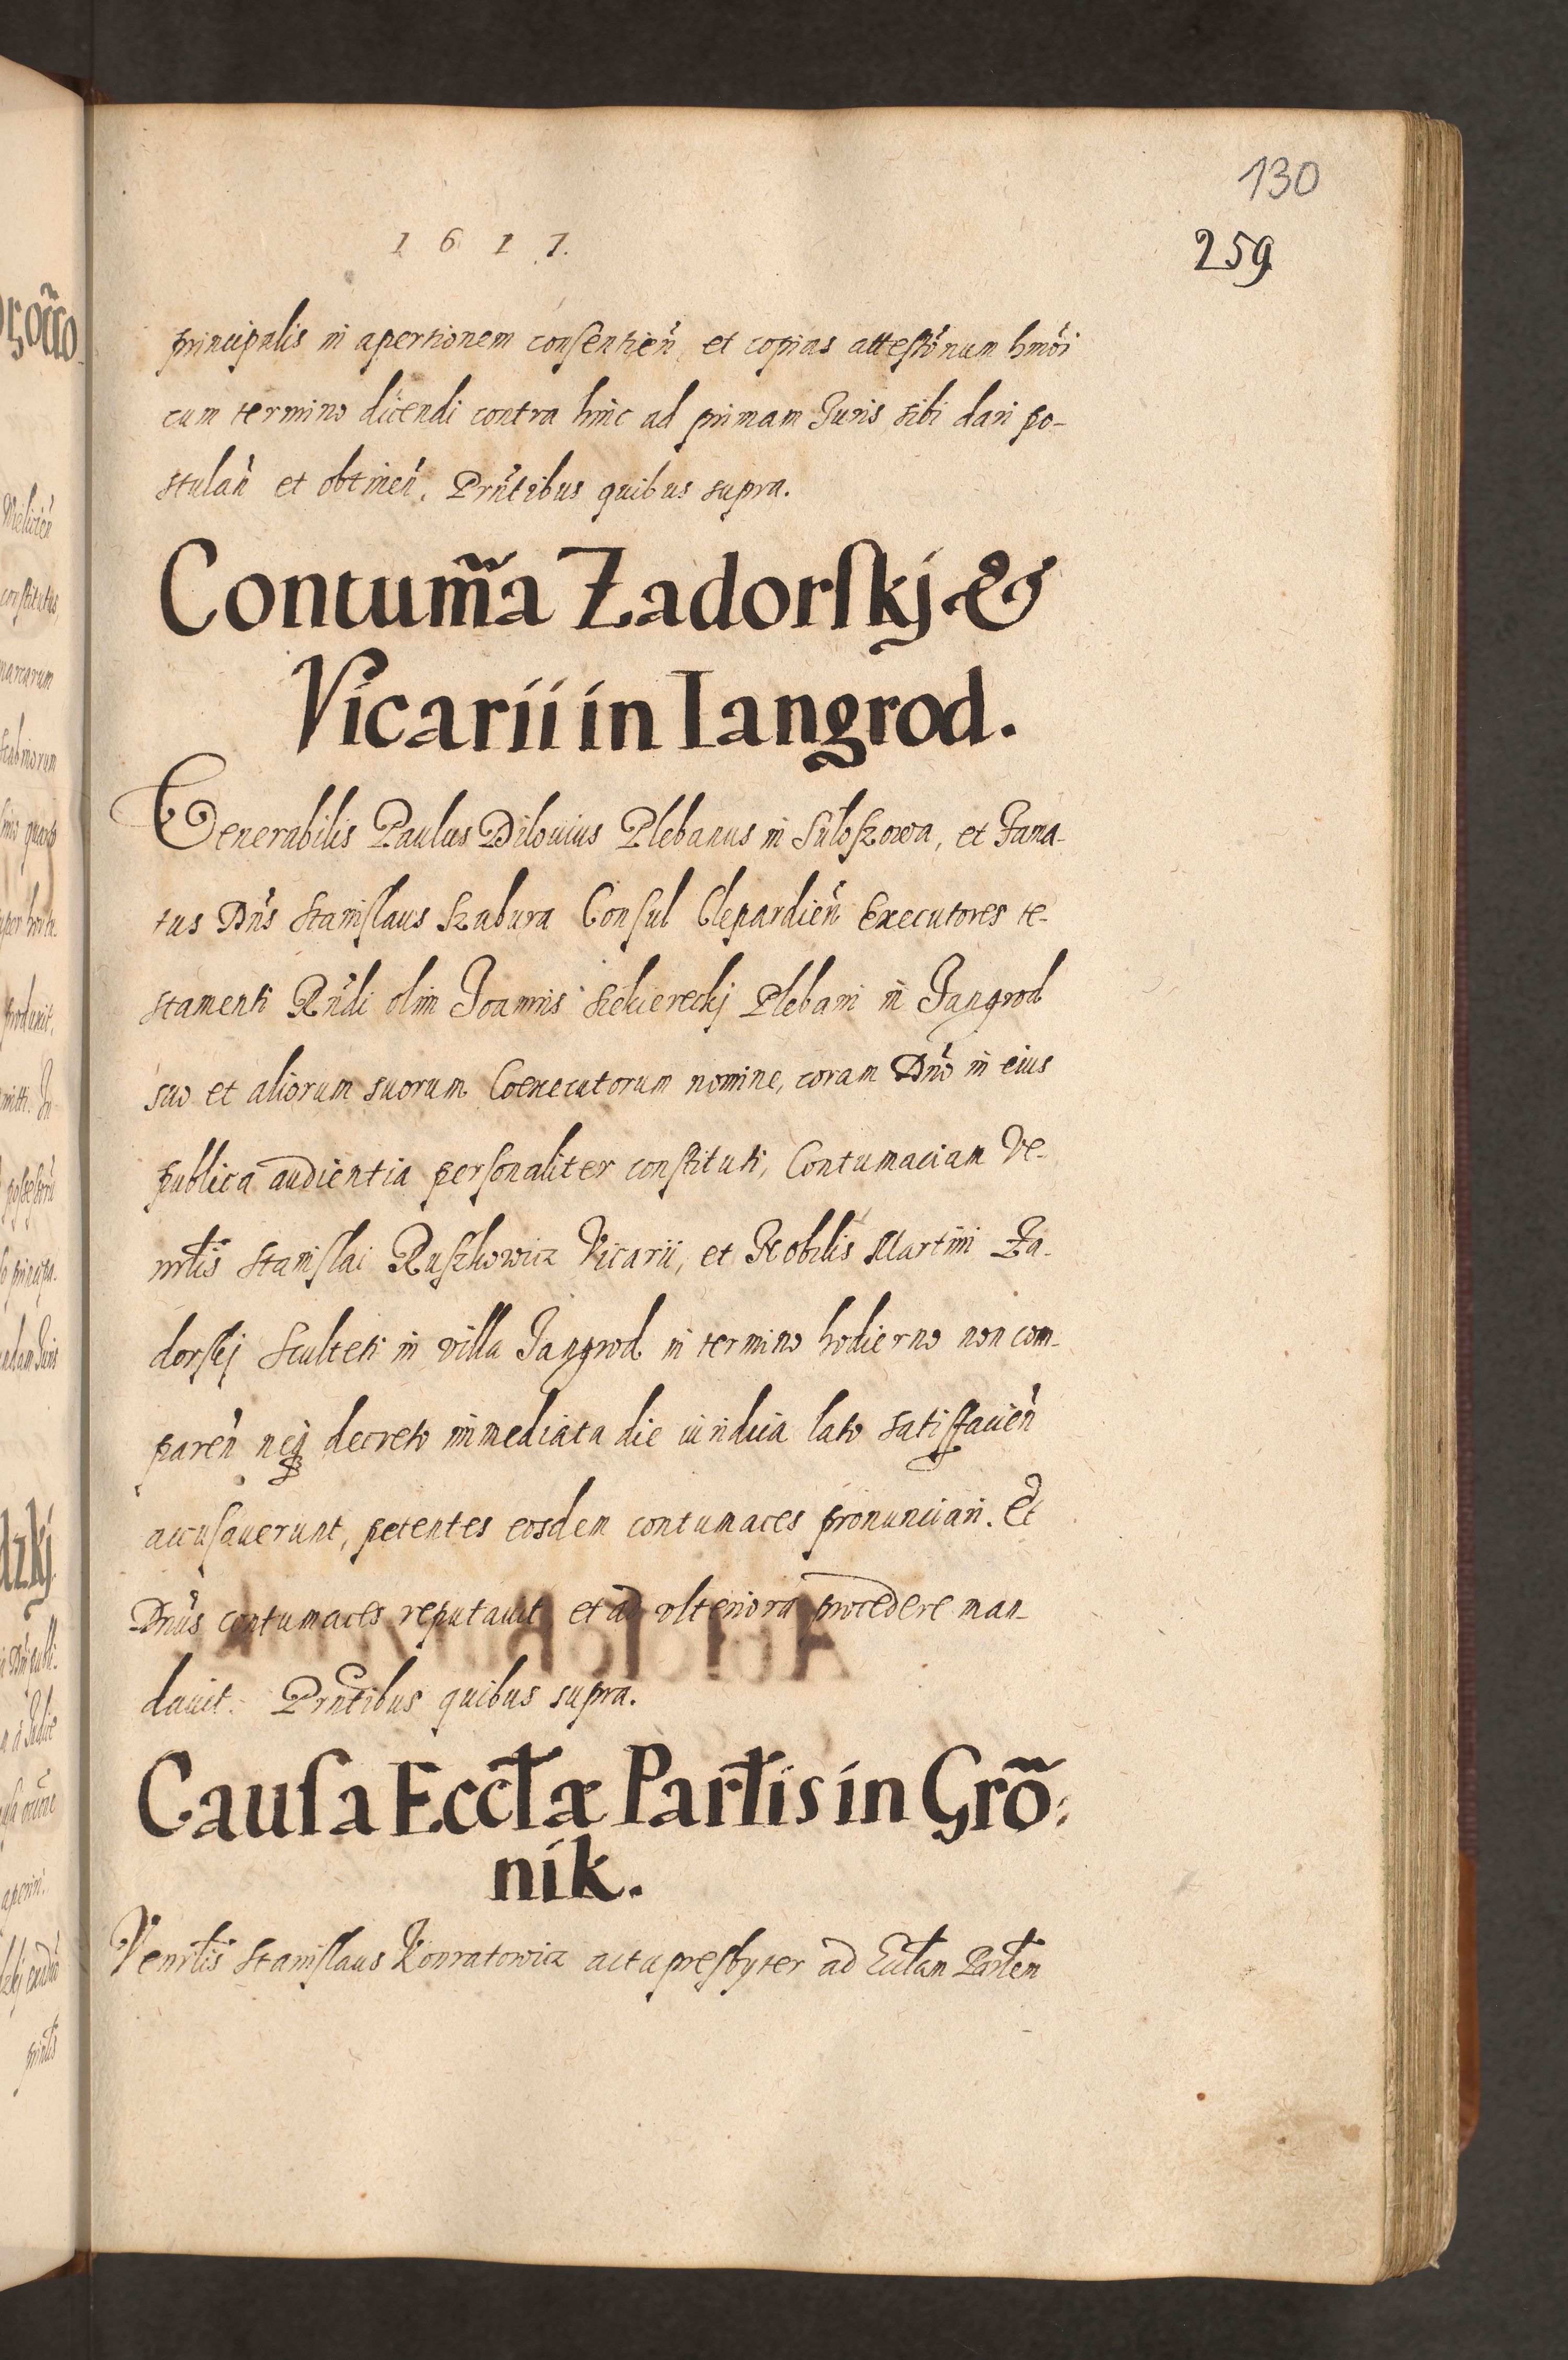 130
1617.
259
principalis in apertionem consentien̄ et copias attestōnum hmōi
cum termino dicendi contra hinc ad primam Juris sibi dari po-
stulan̄ et obtinen̄. Prn̄tibus quibus supra.
Contum̃a Zadorskj &
Vicarii in Iangrod.
Venerabilis Paulus Dilouius Plebanus in Suloszowa, et Fama-
tus Dn̄s Stanislaus Szabura Consul Clepardien̄ Executores te-
stamenti Rn̄di olim Joannis Siekiereckj Plebani in Jangrod
suo et aliorum suorum Coexecutorum nomine, coram Dn̄o in eius
publica audientia personaliter constituti, Contumaciam Ve-
nrlis Stanislai Ruszkowicz Vicarii, et Nobilis Martini Za-
dorskj Sculteti in villa Jangrod in termino hodierno non com-
paren̄ neq̄ decreto immediata die iuridica lato satisfacien̄
accusauerunt, petentes eosdem contumaces pronunciari. Et
Dn̄us contumaces reputauit et ad vlteriora procedere man-
dauit. Prn̄tibus quibus supra.
Causa Eccłæ Parłis in Grõ:
nik.
Venrłis Stanislaus Konratowicz actu presbyter ad Eccłam Parłem